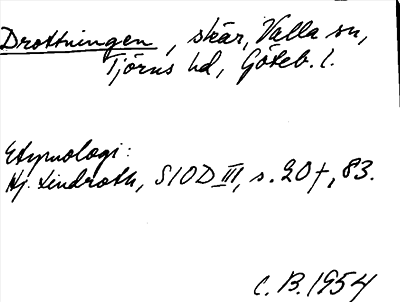 Drottningen, skär, Valla sn,
Tjörns hd, Göteb. l.
Etymologi:
Hj. Lindroth, SIOD III, s. 20 f, 83.
C. B. 1954